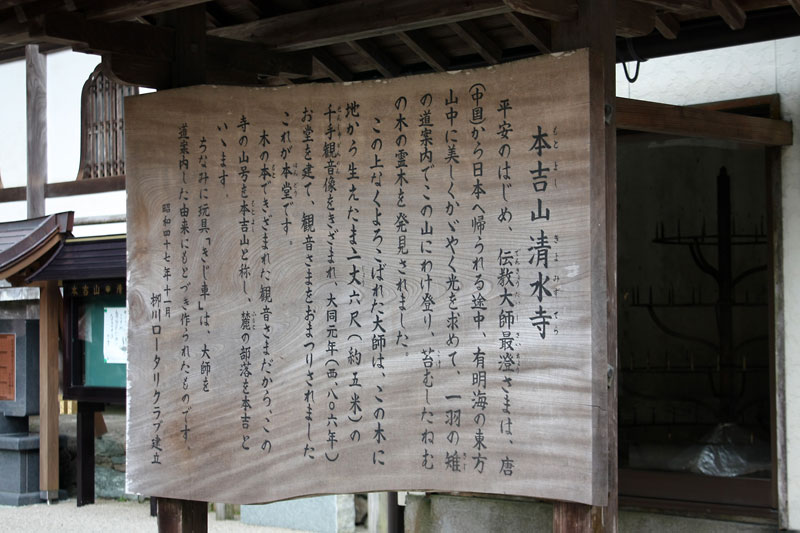 本吉山 清水寺
平安のはじめ、伝教大師最澄さまは、唐
(中国から日本へ帰られる途中、有明海の東方
山中に美しくかゞやく光を求めて、一羽の雉
の道案内でこの山にわけ登り、苔むしたねむ
の木の霊木を発見されました。
この上なくよろこばれた大師は、この木に
地から生えたまゝ一丈六尺(約五米)の
千手観音像をきざまれ、大同元年(西、八〇六年)
お堂を建て、観音さまをおまつりされました
これが本堂です。
木の本できざまれた観音さまだから、この
寺の山号を本吉山と称し、麓の部落を本吉と
いゝます。
ちなみに玩具「きじ車」は、大師を
道案内した由来にもとづき作られたものです。
昭和四十七年十一月
柳川ロータリークラブ建立
本吉山